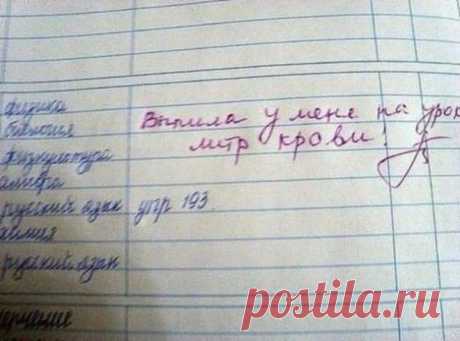 физика
биология
Выпила у меня на урок
литр крови!
физкультура
алгебра
русский язык упр 193.
химия
русский язык
черчение
postila.ru